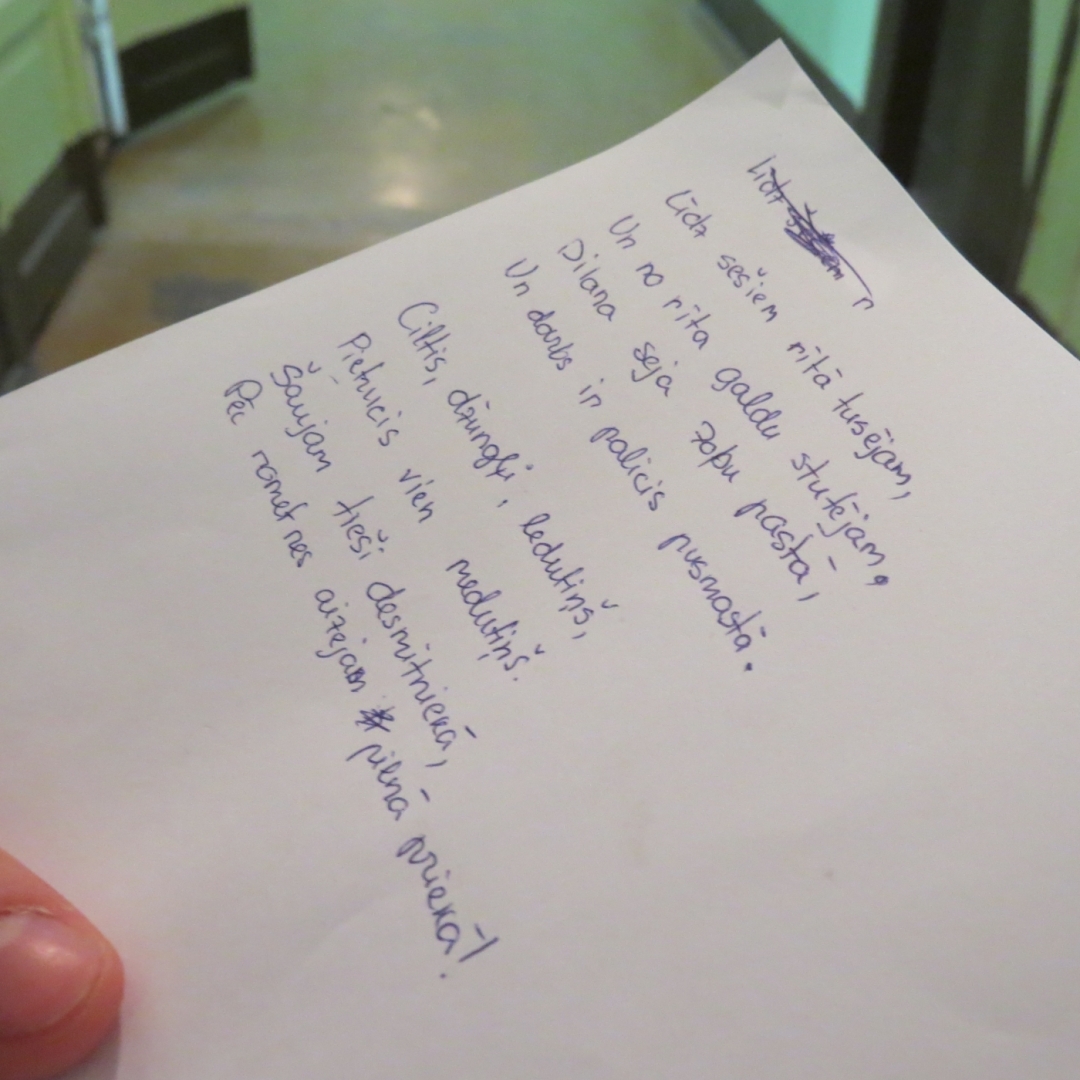 Līdz
Līdz sešiem rītā tusējam,
Un no rīta galdu stutējam,
Dilana seja zobu pastā,
Un darbs ir palicis pusmastā.
Ciltis, džungļi, ledutiņš,
Pietrucis vien medutiņš.
Šaujam tieši desmitniekā,
Pēc nometnes aizejam pilnā priekā!